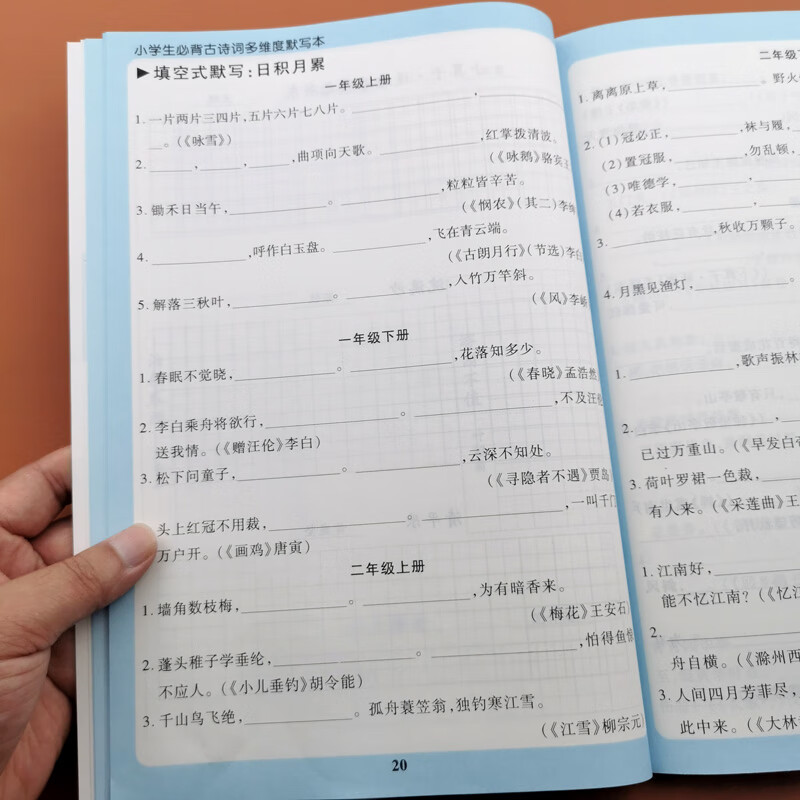 小学生必背古诗词多维度默写本
▶填空式默写:日积月累
一年级上册
1. 一片两片三四片,五片六片七八片。____________,____________
__。(《咏雪》)
2. ______,______,______,曲项向天歌。____________,红掌拨清波。
(《咏鹅》骆宾王
3. 锄禾日当午,____________。____________,粒粒皆辛苦。
(《悯农》(其二)李绅
4. ____________,呼作白玉盘。____________,飞在青云端。
(《古朗月行》(节选)李白
5. 解落三秋叶,____________。____________,入竹万竿斜。
(《风》李峤
一年级下册
1. 春眠不觉晓,____________。____________,花落知多少。
(《春晓》孟浩然
2. 李白乘舟将欲行,____________。____________,不及汪伦
送我情。(《赠汪伦》李白)
3. 松下问童子,____________。____________,云深不知处。
(《寻隐者不遇》贾岛
头上红冠不用裁,____________。____________,一叫千门
万户开。(《画鸡》唐寅)
二年级上册
1. 墙角数枝梅,____________。____________,为有暗香来。
(《梅花》王安石
2. 蓬头稚子学垂纶,____________。____________,怕得鱼惊
不应人。(《小儿垂钓》胡令能)
3. 千山鸟飞绝,____________。孤舟蓑笠翁,独钓寒江雪。
(《江雪》柳宗元
20
二年级下
1. 离离原上草,____________。野火
2. (1)冠必正,____________,袜与履,
(2)置冠服,____________,勿乱顿,
(3)唯德学,____________,
(4)若衣服,____________,
3. ____________,秋收万颗子。
4. 月黑见渔灯,____________。
1. ____________,歌声振林
2. ____________
已过万重山。(《早发白帝
3. 荷叶罗裙一色裁,
有人来。(《采莲曲》王
1. 江南好,____________
能不忆江南?(《忆江
2. ____________
舟自横。(《滁州西
3. 人间四月芳菲尽,
此中来。(《大林